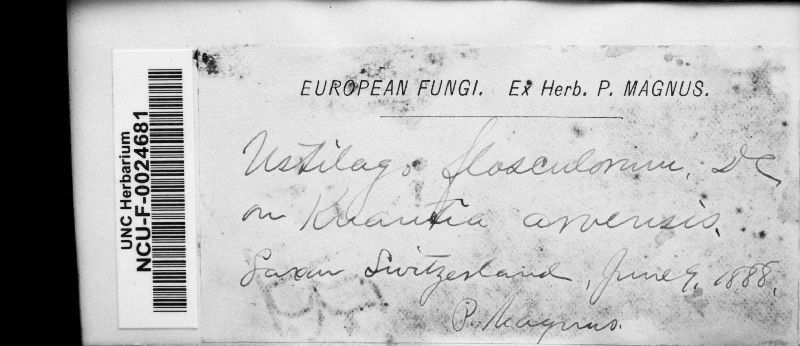 EUROPEAN FUNGI. Ex Herb. P. MAGNUS.
Ustilago flosculorum, DC
on Knautia arvensis.
Saxon Switzerland, June 9, 1888,
P. Magnus.
UNC Herbarium
NCU-F-0024681